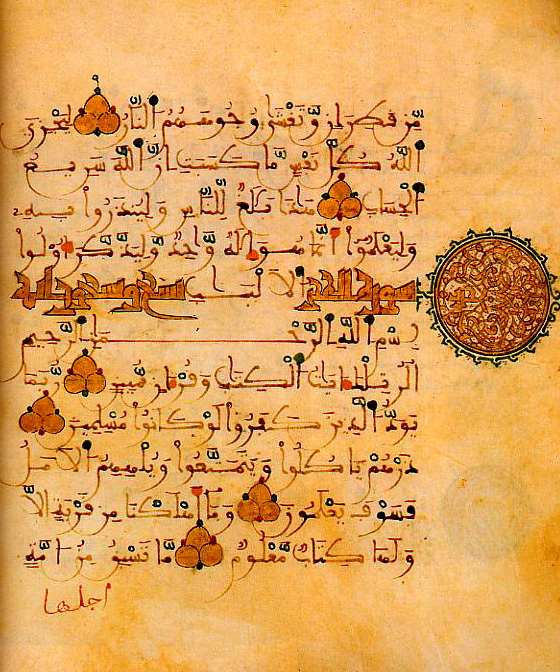 مِّن قَطِرَانٍ وَّتَغْشَىٰ وُجُوهَهُمُ النَّارُ لِيَجْزِيَ
اللَّهُ كُلَّ نَفْسٍ مَّا كَسَبَتِ انَّ اللَّهَ سَرِيعُ
الْحِسَابِ هَٰذَا بَلَٰغٌ لِّلنَّاسِ وَلِيُنذَرُوا بِهِ
وَلِيَعْلَمُوا أَنَّمَا هُوَ إِلَٰهٌ وَٰحِدٌ وَلِيَذَّكَّرَ أُوْلُوا
سورة الحجر الَالْبَٰبِ تسع وتسعون اية
بِسْمِ اللَّهِ الرَّحْمَٰنِ الرَّحِيمِ
الر تِلْكَ ءَايَٰتُ الْكِتَٰبِ وَقُرْءَانٍ مُّبِينٍ رُّبَمَا
يَوَدُّ الَّذِينَ كَفَرُوا لَوْ كَانُوا مُسْلِمِينَ
ذَرْهُمْ يَاكُلُوا وَيَتَمَتَّعُوا وَيُلْهِهِمُ الَامَلُ
فَسَوْفَ يَعْلَمُونَ وَمَا أَهْلَكْنَا مِن قَرْيَةٍ الَّا
وَلَهَا كِتَابٌ مَّعْلُومٌ مَّا تَسْبِقُ مِنُ امَّةٍ
اجلها